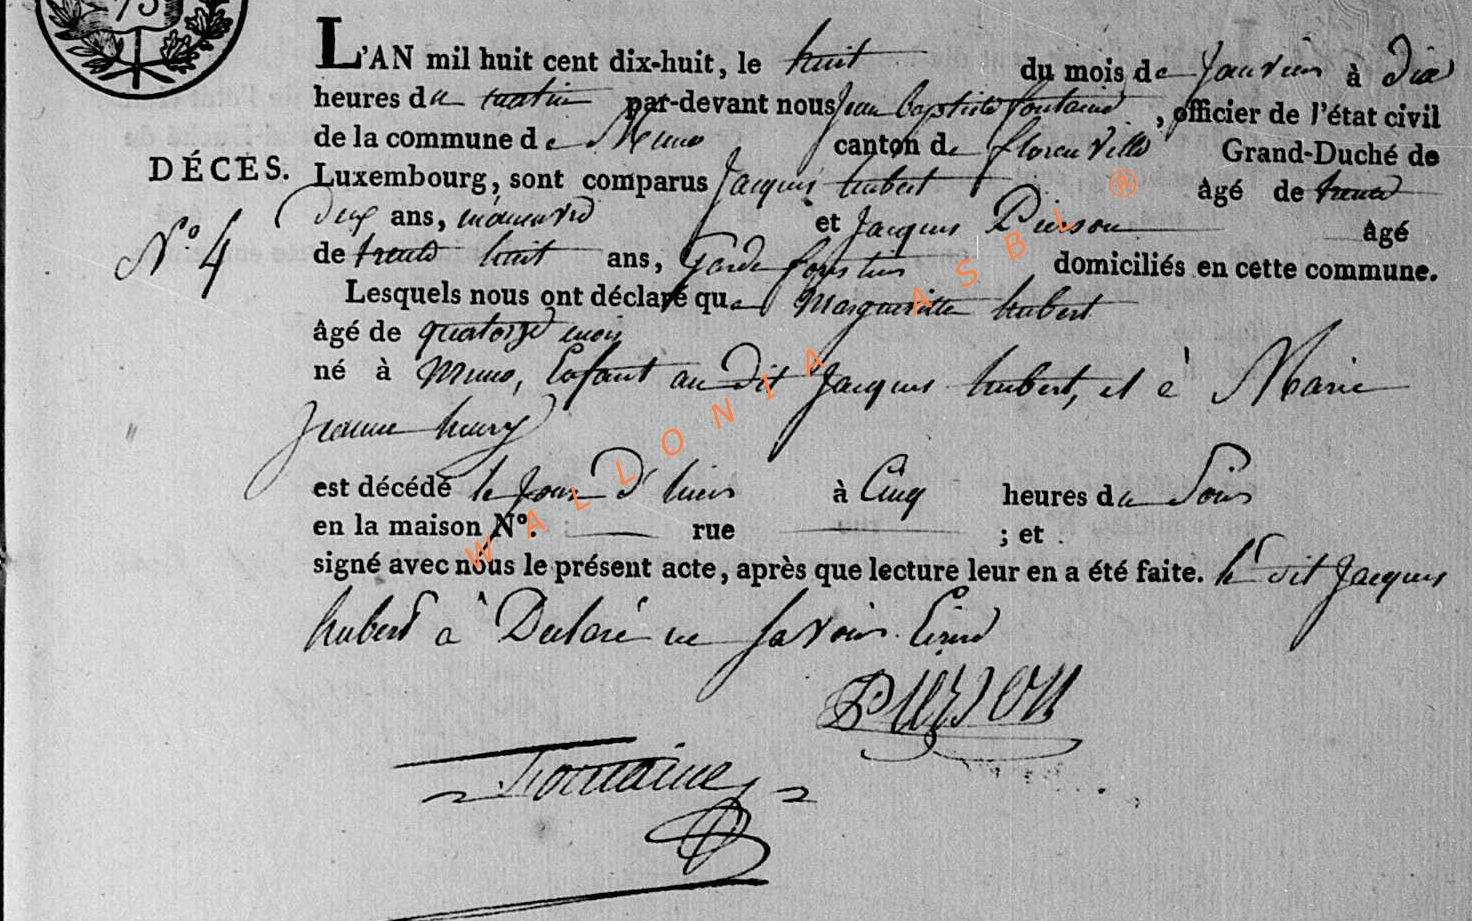 75
L'AN mil huit cent dix-huit, le huit du mois de Janvier à Dix
heures du matin par-devant nous Jean baptiste fontaine, officier de l'état civil
de la commune de Muno canton de florenville Grand-Duché de
DÉCÈS. Luxembourg, sont comparus Jacques hubert âgé de trente
Deux ans, manuvre et Jacques Pierson âgé
N.° 4 de trente huit ans, Garde forestier domiciliés en cette commune.
Lesquels nous ont déclaré que Margueritte hubert
âgé de quatorze mois
né à Muno, Enfant au dit Jacques hubert, et à Marie
Jeanne henry
est décédé le Jour D'hier à Cinq heures du Soir
en la maison N°. rue ; et
signé avec nous le présent acte, après que lecture leur en a été faite. le dit Jacques
hubert a Declaré ne savoir Ecrire
PIERSON
Fontaine
WALLONIA ASBL ®